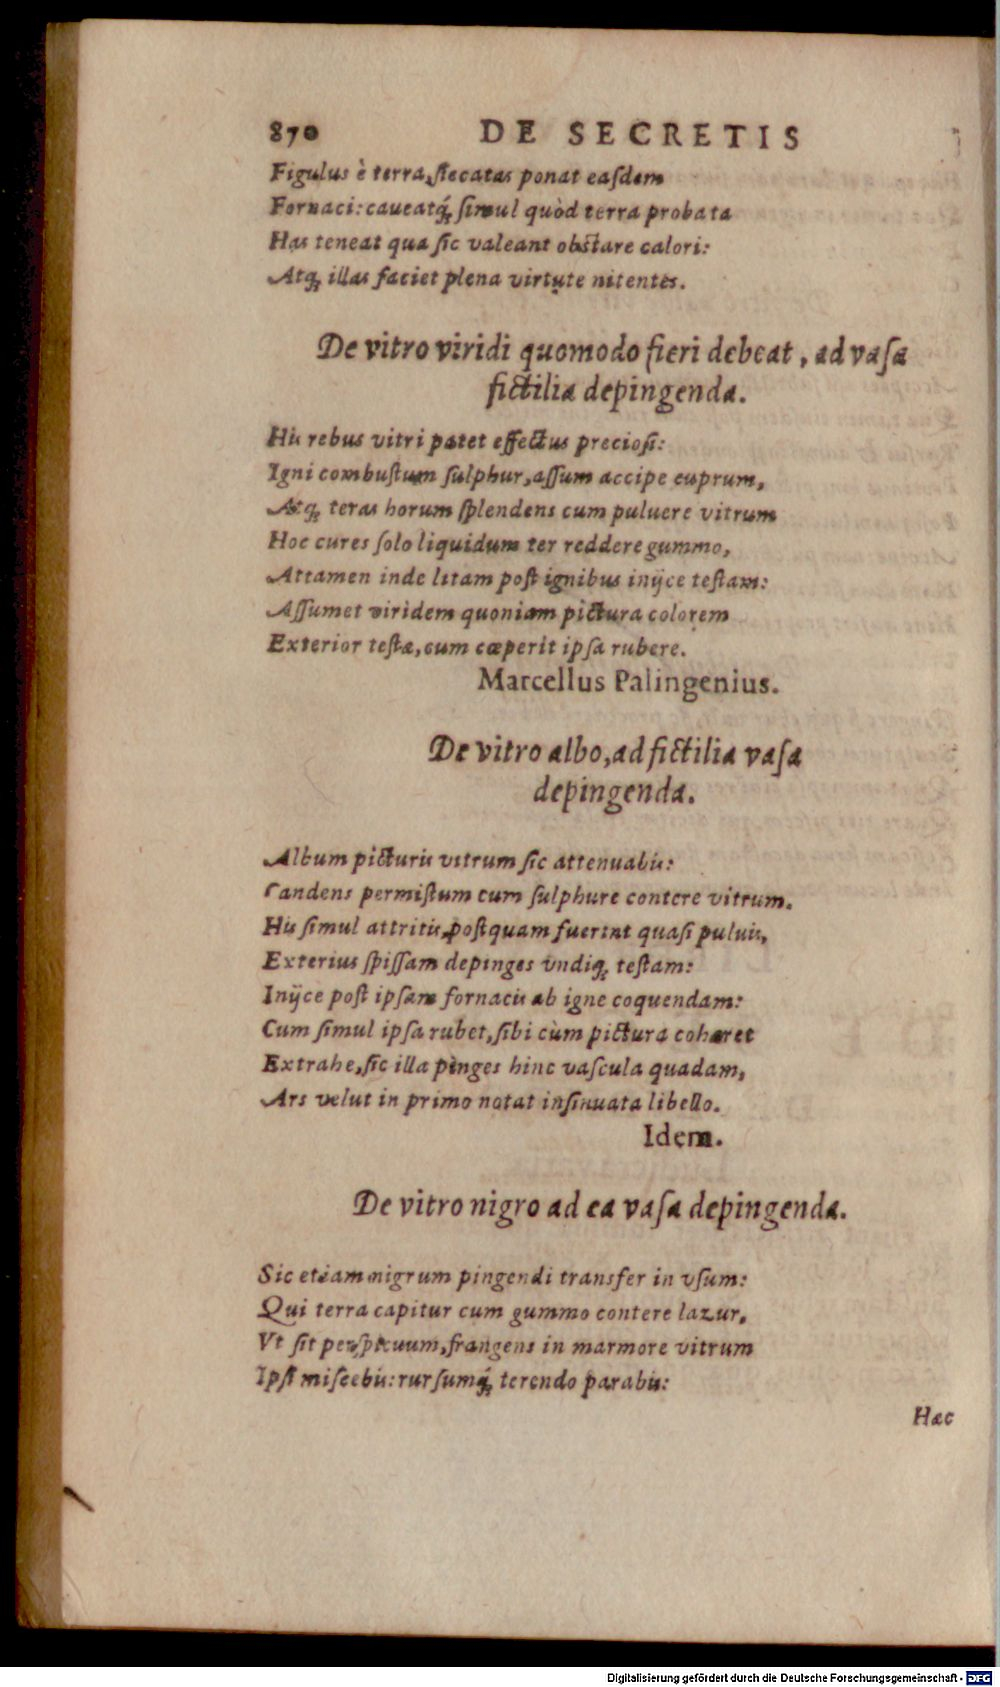 870 DE SECRETIS
Figulus è terra, siccatas ponat easdem
Fornaci: caueatq́; simul quòd terra probata
Has teneat qua sic valeant obstare calori:
Atq; illas faciet plena virtute nitentes.
De vitro viridi quomodo fieri debeat, ad vasa
fictilia depingenda.
His rebus vitri patet effectus preciosi:
Igni combustum sulphur, assum accipe cuprum,
Atq; teras horum splendens cum puluere vitrum
Hoc cures solo liquidum ter reddere gummo,
Attamen inde litam post ignibus inijce testam:
Assumet viridem quoniam pictura colorem
Exterior testæ, cum cœperit ipsa rubere.
Marcellus Palingenius.
De vitro albo, ad fictilia vasa
depingenda.
Album picturis vitrum sic attenuabis:
Candens permistum cum sulphure contere vitrum.
His simul attritis, postquam fuerint quasi puluis,
Exterius spissam depinges vndiq; testam:
Inijce post ipsam fornacis ab igne coquendam:
Cum simul ipsa rubet, sibi cùm pictura cohæret
Extrahe, sic illa pinges hinc vascula quadam,
Ars velut in primo notat insinuata libello.
Idem.
De vitro nigro ad ea vasa depingenda.
Sic etiam nigrum pingendi transfer in vsum:
Qui terra capitur cum gummo contere lazur,
Vt sit perspicuum, frangens in marmore vitrum
Ipsi miscebis: rursumq́; terendo parabis:
Hæc
Digitalisierung gefördert durch die Deutsche Forschungsgemeinschaft - DFG